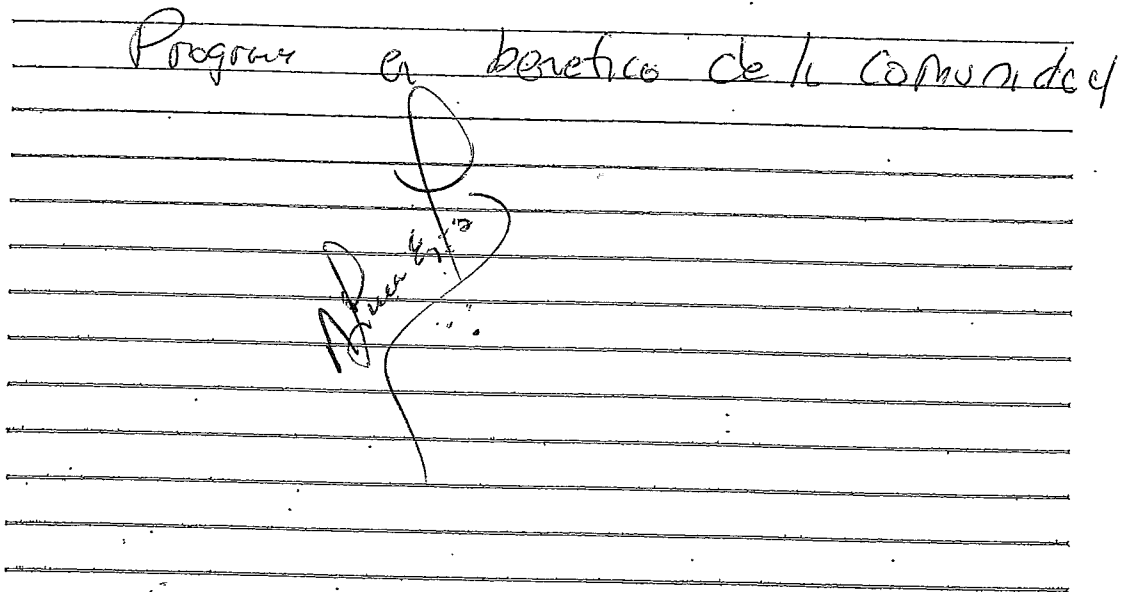 Programa en benefico de la Comunidad